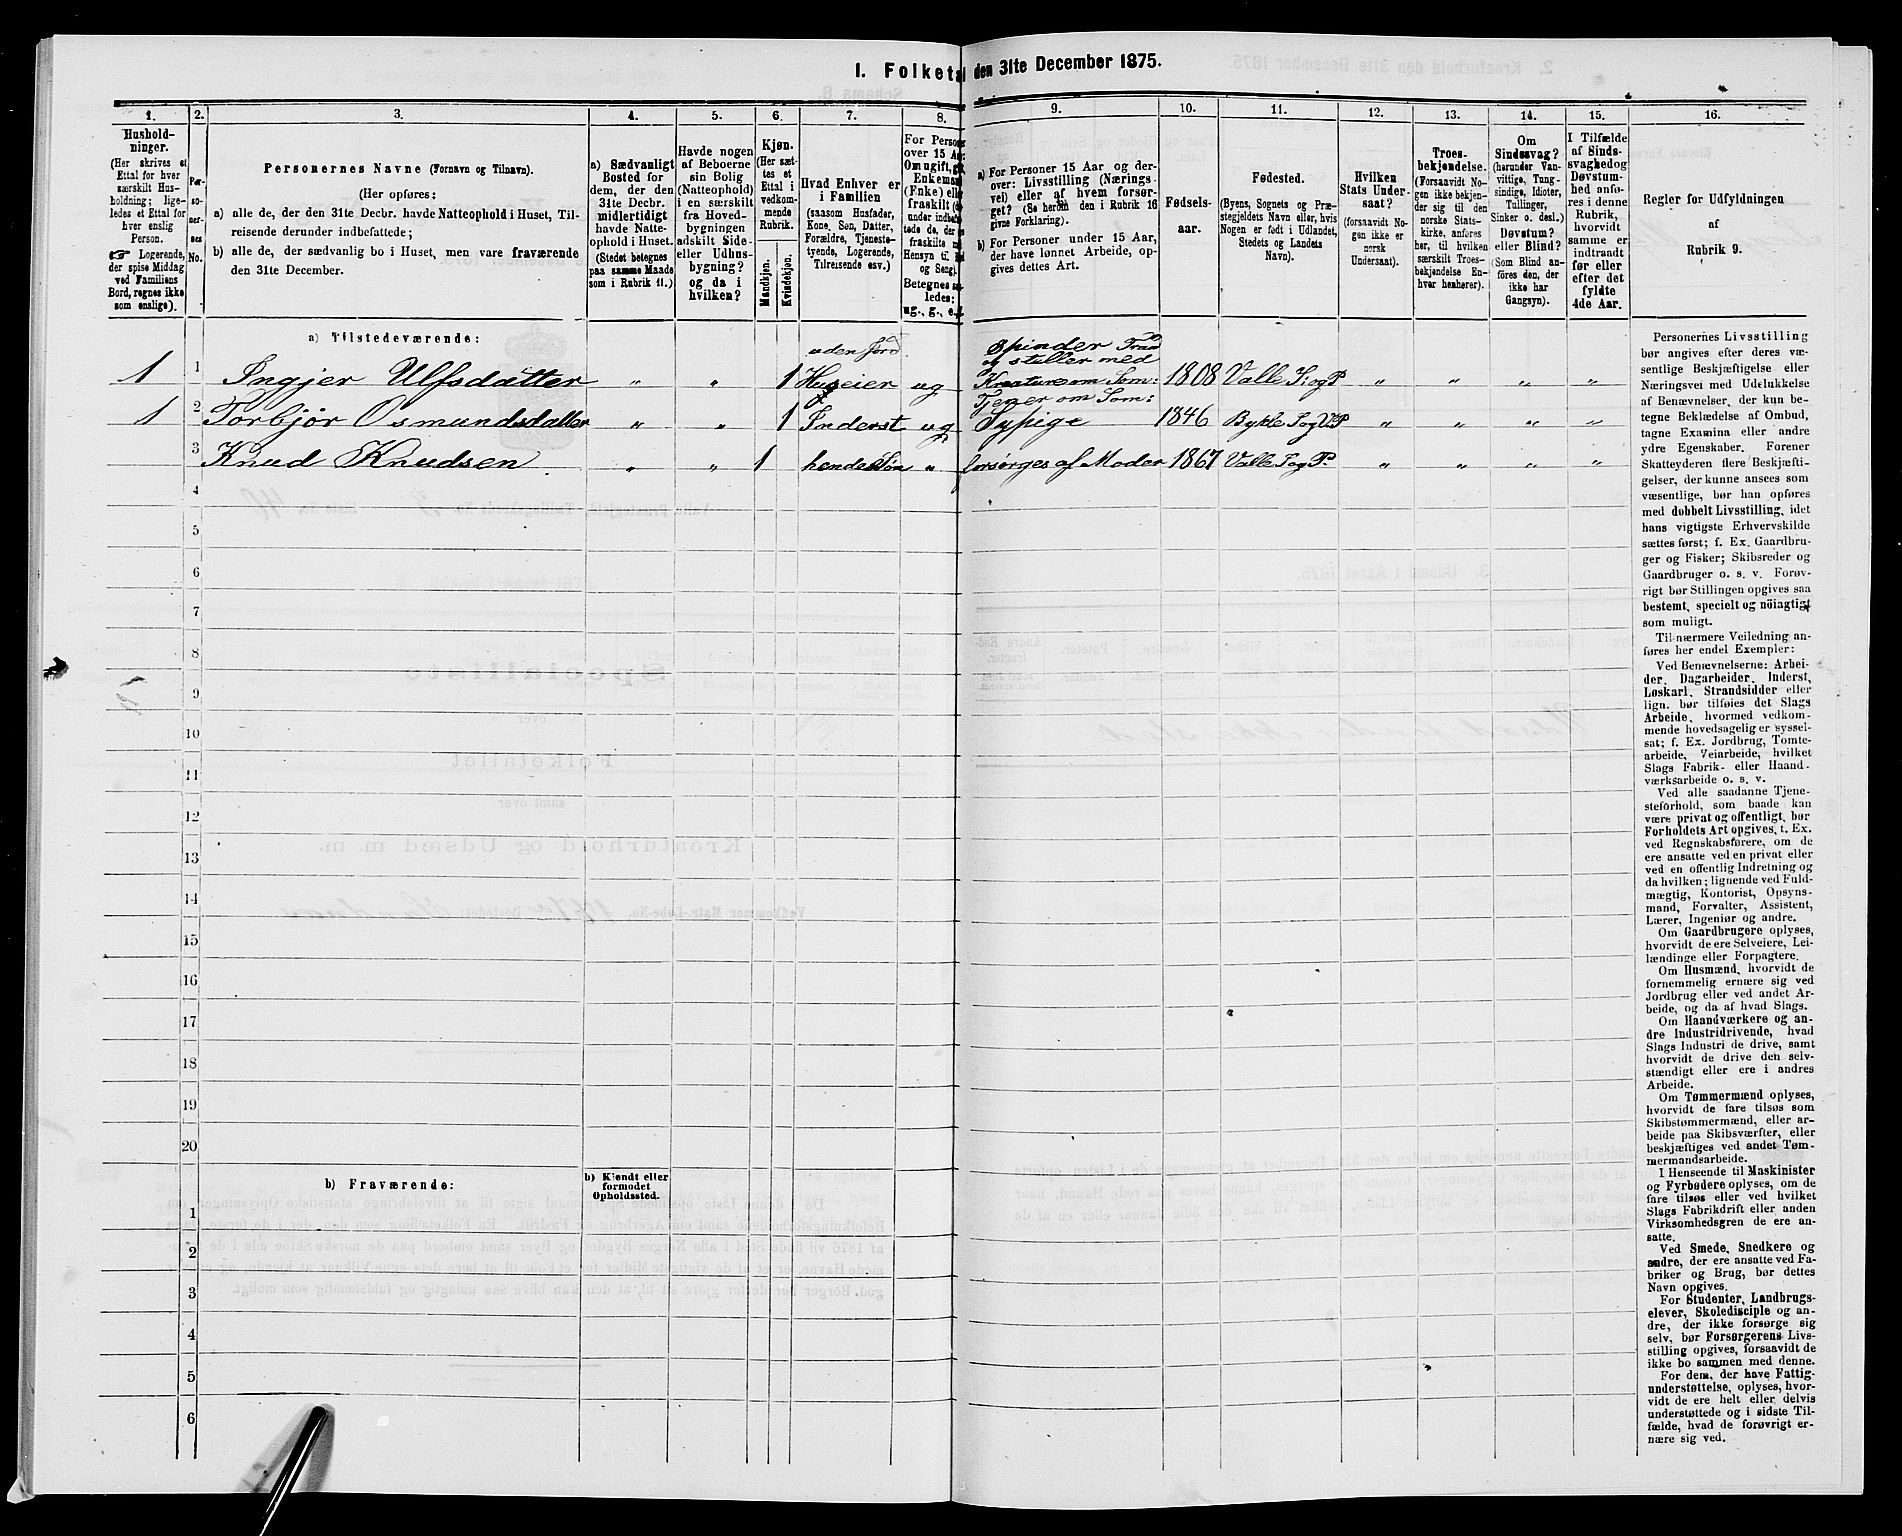 I. Folketal den 31te December 1875.
1.
Hushold-
ninger.
(Her skrives et
Ettal for hver
særskilt Hus-
holdning; lige-
ledes et Ettal for
hver enslig
Person.
☞ Logerende,
der spise Middag
ved Familiens
Bord, regnes ikke
som enslige).
2.
Per-
so-
ner-
nes
No.
3.
Personernes Navne (Fornavn og Tilnavn).
(Her opføres:
a) alle de, der den 31te Decbr. havde Natteophold i Huset, Til-
reisende derunder indbefattede;
b) alle de, der sædvanlig bo i Huset, men vare fraværende
den 31te December.
4.
a) Sædvanligt
Bosted for
dem, der den
31te Decbr.
midlertidigt
havde Natte-
ophold i Huset.
(Stedet betegnes
paa samme Maade
som i Rubrik 11.)
5.
Havde nogen
af Beboerne
sin Bolig
(Natteophold)
i en særskilt
fra Hoved-
bygningen
adskilt Side-
eller Udhus-
bygning?
og da i
hvilken?
6.
Kjøn.
(Her sæt-
tes et
Ettal i
vedkom-
mende
Rubrik.
Mandkjøn.
Kvindekjøn.
7.
Hvad Enhver er
i Familien
(saasom Husfader,
Kone, Søn, Datter,
Forældre, Tjeneste-
tyende, Logerende,
Tilreisende osv.)
8.
For Personer
over 15 Aar:
Om ugift, gift,
Enkemand
(Enke) eller
fraskilt
Betegnes saa-
ledes:
ug., g., e., f.
9.
a) For Personer 15 Aar og der-
over: Livsstilling (Nærings-
vei) eller af hvem forsør-
get? (Se herom den i Rubrik 16
givne Forklaring).
b) For Personer under 15 Aar,
der have lønnet Arbeide, op-
gives dettes Art.
10.
Fødsels-
aar.
11.
Fødested.
(Byens, Sognets og Præ-
stegjeldets Navn eller, hvis
Nogen er født i Udlandet,
Stedets og Landets
Navn).
12.
Hvilken
Stats Under-
saat?
(forsaavidt No-
gen ikke er
norsk
Undersaat).
13.
Troes-
bekjendelse.
(Forsaavidt No-
gen ikke bekjen-
der sig til den
norske Stats-
kirke, anfø-
res her, til hvilken
særskilt Troes-
bekjendelse En-
hver henhører).
14.
Om
Sindssvag?
(herunder Van-
vittige, Tung-
sindige, Idioter,
Tullinger,
Sinker o. desl.)
Døvstum?
eller Blind?
(Som Blind an-
føres den, der
ikke har
Gangsyn).
15.
I Tilfælde
af Sinds-
svaghed og
Døvstum-
hed anfø-
res i denne
Rubrik,
hvorvidt
samme er
indtraadt
før eller
efter det
fyldte
4de Aar.
16.
Regler for Udfyldningen
af
Rubrik 9.
a) Tilstedeværende:
1 1 Ingjer Ulfsdatter " " 1 Huseier uden Jord ug Spinder Traad og steller med Kreature om Som: 1808 Valle S. og P " " " "
1 2 Torbjør Osmundsdatter " " 1 Inderst ug Tjener om Som: Sypige 1846 Bykle S og V P " " " "
3 Knud Knudsen " " 1 hendes Søn " forsørges af Moder 1867 Valle S og P. " " " "
4
5
6
7
8
9
10
11
12
13
14
15
16
17
18
19
20
b) Fraværende:
b) Kjendt eller
formodet
Opholdssted.
1
2
3
4
5
6
Personernes Livsstilling
bør angives efter deres væ-
sentlige Beskjæftigelse eller
Næringsvei med Udelukkelse
af Benævnelser, der kun be-
tegne Beklædelse af Ombud,
tagne Examina eller andre
ydre Egenskaber. Forener
Skatteyderen flere Beskjæfti-
gelser, der kunne ansees som
væsentlige, bør han opføres
med dobbelt Livsstilling, idet
hans vigtigste Erhvervskilde
sættes først; f. Ex. Gaardbru-
ger og Fisker; Skibsreder og
Gaardbruger o. s. v. Forøv-
rigt bør Stillingen opgives saa
bestemt, specielt og nøiagtigt
som muligt.
Til nærmere Veiledning an-
føres her endel Exempler:
Ved Benævnelserne: Arbei-
der, Dagarbeider, Inderst,
Løskarl, Strandsidder eller
lign. bør tilføies det Slags
Arbeide, hvormed vedkom-
mende hovedsagelig er syssel-
sat; f. Ex. Jordbrug, Tomte-
arbeide, Veiarbeide, hvilket
Slags Fabrik- eller Haand-
værksarbeide o. s. v.
Ved alle saadanne Tjene-
steforhold, som baade kan
være privat og offentligt, bør
Forholdets Art opgives, t. Ex.
ved Regnskabsførere, om de
ere ansatte ved en privat eller
ved en offentlig Indretning og
da hvilken; lignende ved Fuld-
mægtig, Kontorist, Opsyns-
mand, Forvalter, Assistent,
Lærer, Ingeniør og andre.
Om Gaardbrugere oplyses,
hvorvidt de ere Selveiere, Lei-
lændinge eller Forpagtere.
Om Husmænd, hvorvidt de
fornemmelig ernære sig ved
Jordbrug eller ved andet Ar-
beide, og da af hvad Slags.
Om Haandværkere og an-
dre Industridrivende, hvad
Slags Industri de drive, samt
hvorvidt de drive den selv-
stændigt eller ere i andres
Arbeide.
Om Tømmermænd oplyses,
hvorvidt de fare tilsøs som
Skibstømmermænd, eller ar-
beide paa Skibsværfter, eller
beskjæftiges ved andet Tøm-
mermandsarbeide.
I Henseende til Maskinister
og Fyrbødere oplyses, om de
fare tilsøs eller ved hvilket
Slags Fabrikdrift eller anden
Virksomhedsgren de ere an-
satte.
Ved Smede, Snedkere og
andre, der ere ansatte ved Fa-
briker og Brug, bør dettes
Navn opgives.
For Studenter, Landbrugs-
elever, Skoledisciple og an-
dre, der ikke forsørge sig
selv, bør Forsørgerens Livs-
stilling opgives, forsaavidt de
ikke bo sammen med denne.
For dem, der have Fattig-
understøttelse, oplyses, hvor-
vidt de ere helt eller delvis
understøttede og i sidste Til-
fælde, hvad de forøvrigt er-
nære sig ved.